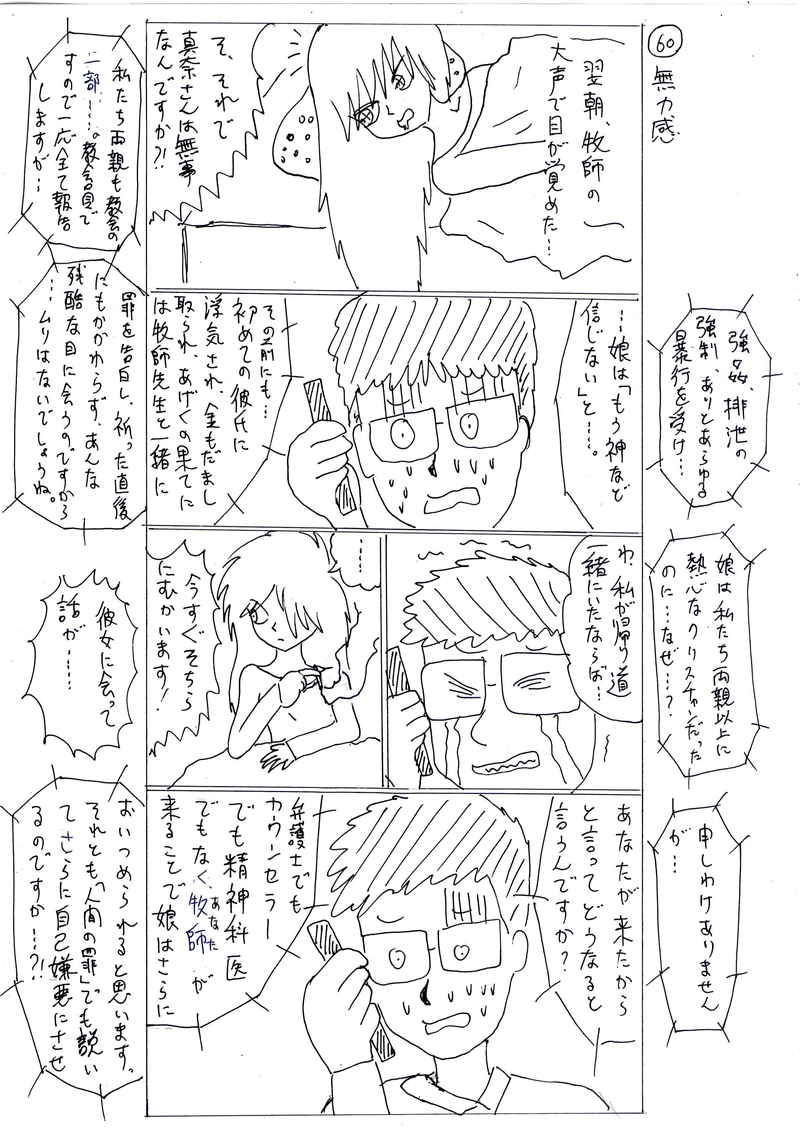 60
無力感
翌朝、牧師の
大声で目が覚めた…
そ、それで
真奈さんは無事
なんですか?!
私たち両親も教会の
一部……。教会員で
すので一応全て報告
しますが…
強姦、排泄の
強制、ありとあらゆる
暴行を受け…
…娘は「もう神など
信じない」と…。
その前にも…
初めての彼氏に
浮気され、金もだまし
取られ、あげくの果てに
は牧師先生と一緒に
罪を告白し、祈った直後
にもかかわらず、あんな
残酷な目に会うのですから
…ムリはないでしょうね。
娘は私たち両親以上に
熱心なクリスチャンだった
のに…なぜ…?
わ、私が帰り道
一緒にいたならば…
……
今すぐそちら
にむかいます!
彼女に会って
話が……
申しわけありません
が…
あなたが来たから
と言ってどうなると
言うんですか?
弁護士でも
カウンセラー
でも精神科医
でもなく、牧師が
あなた
来ることで娘はさらに
おいつめられると思います。
それとも「人間の罪」でも説い
てさらに自己嫌悪にさせ
るのですか…?!